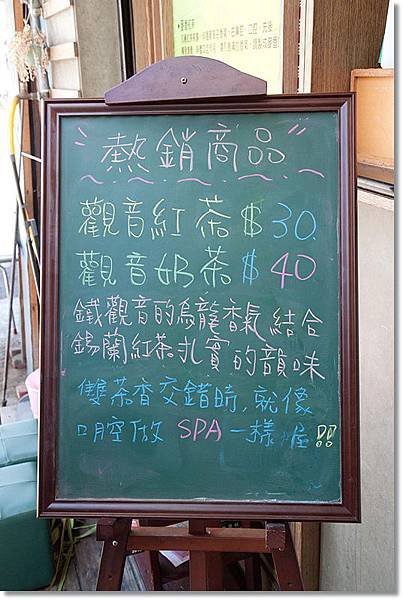 熱銷商品
觀音紅茶 $30
觀音奶茶 $40
鐵觀音的烏龍香氣 結合
錫蘭紅茶扎實的韻味
雙茶香交錯時,就像
口腔做 SPA 一樣 喔!!